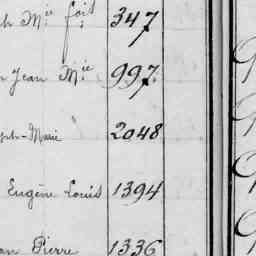 ph Mie fois 347
n Jean Mie 997
ph-Marie 2048
Eugène Louis 1394
an Pierre 1336